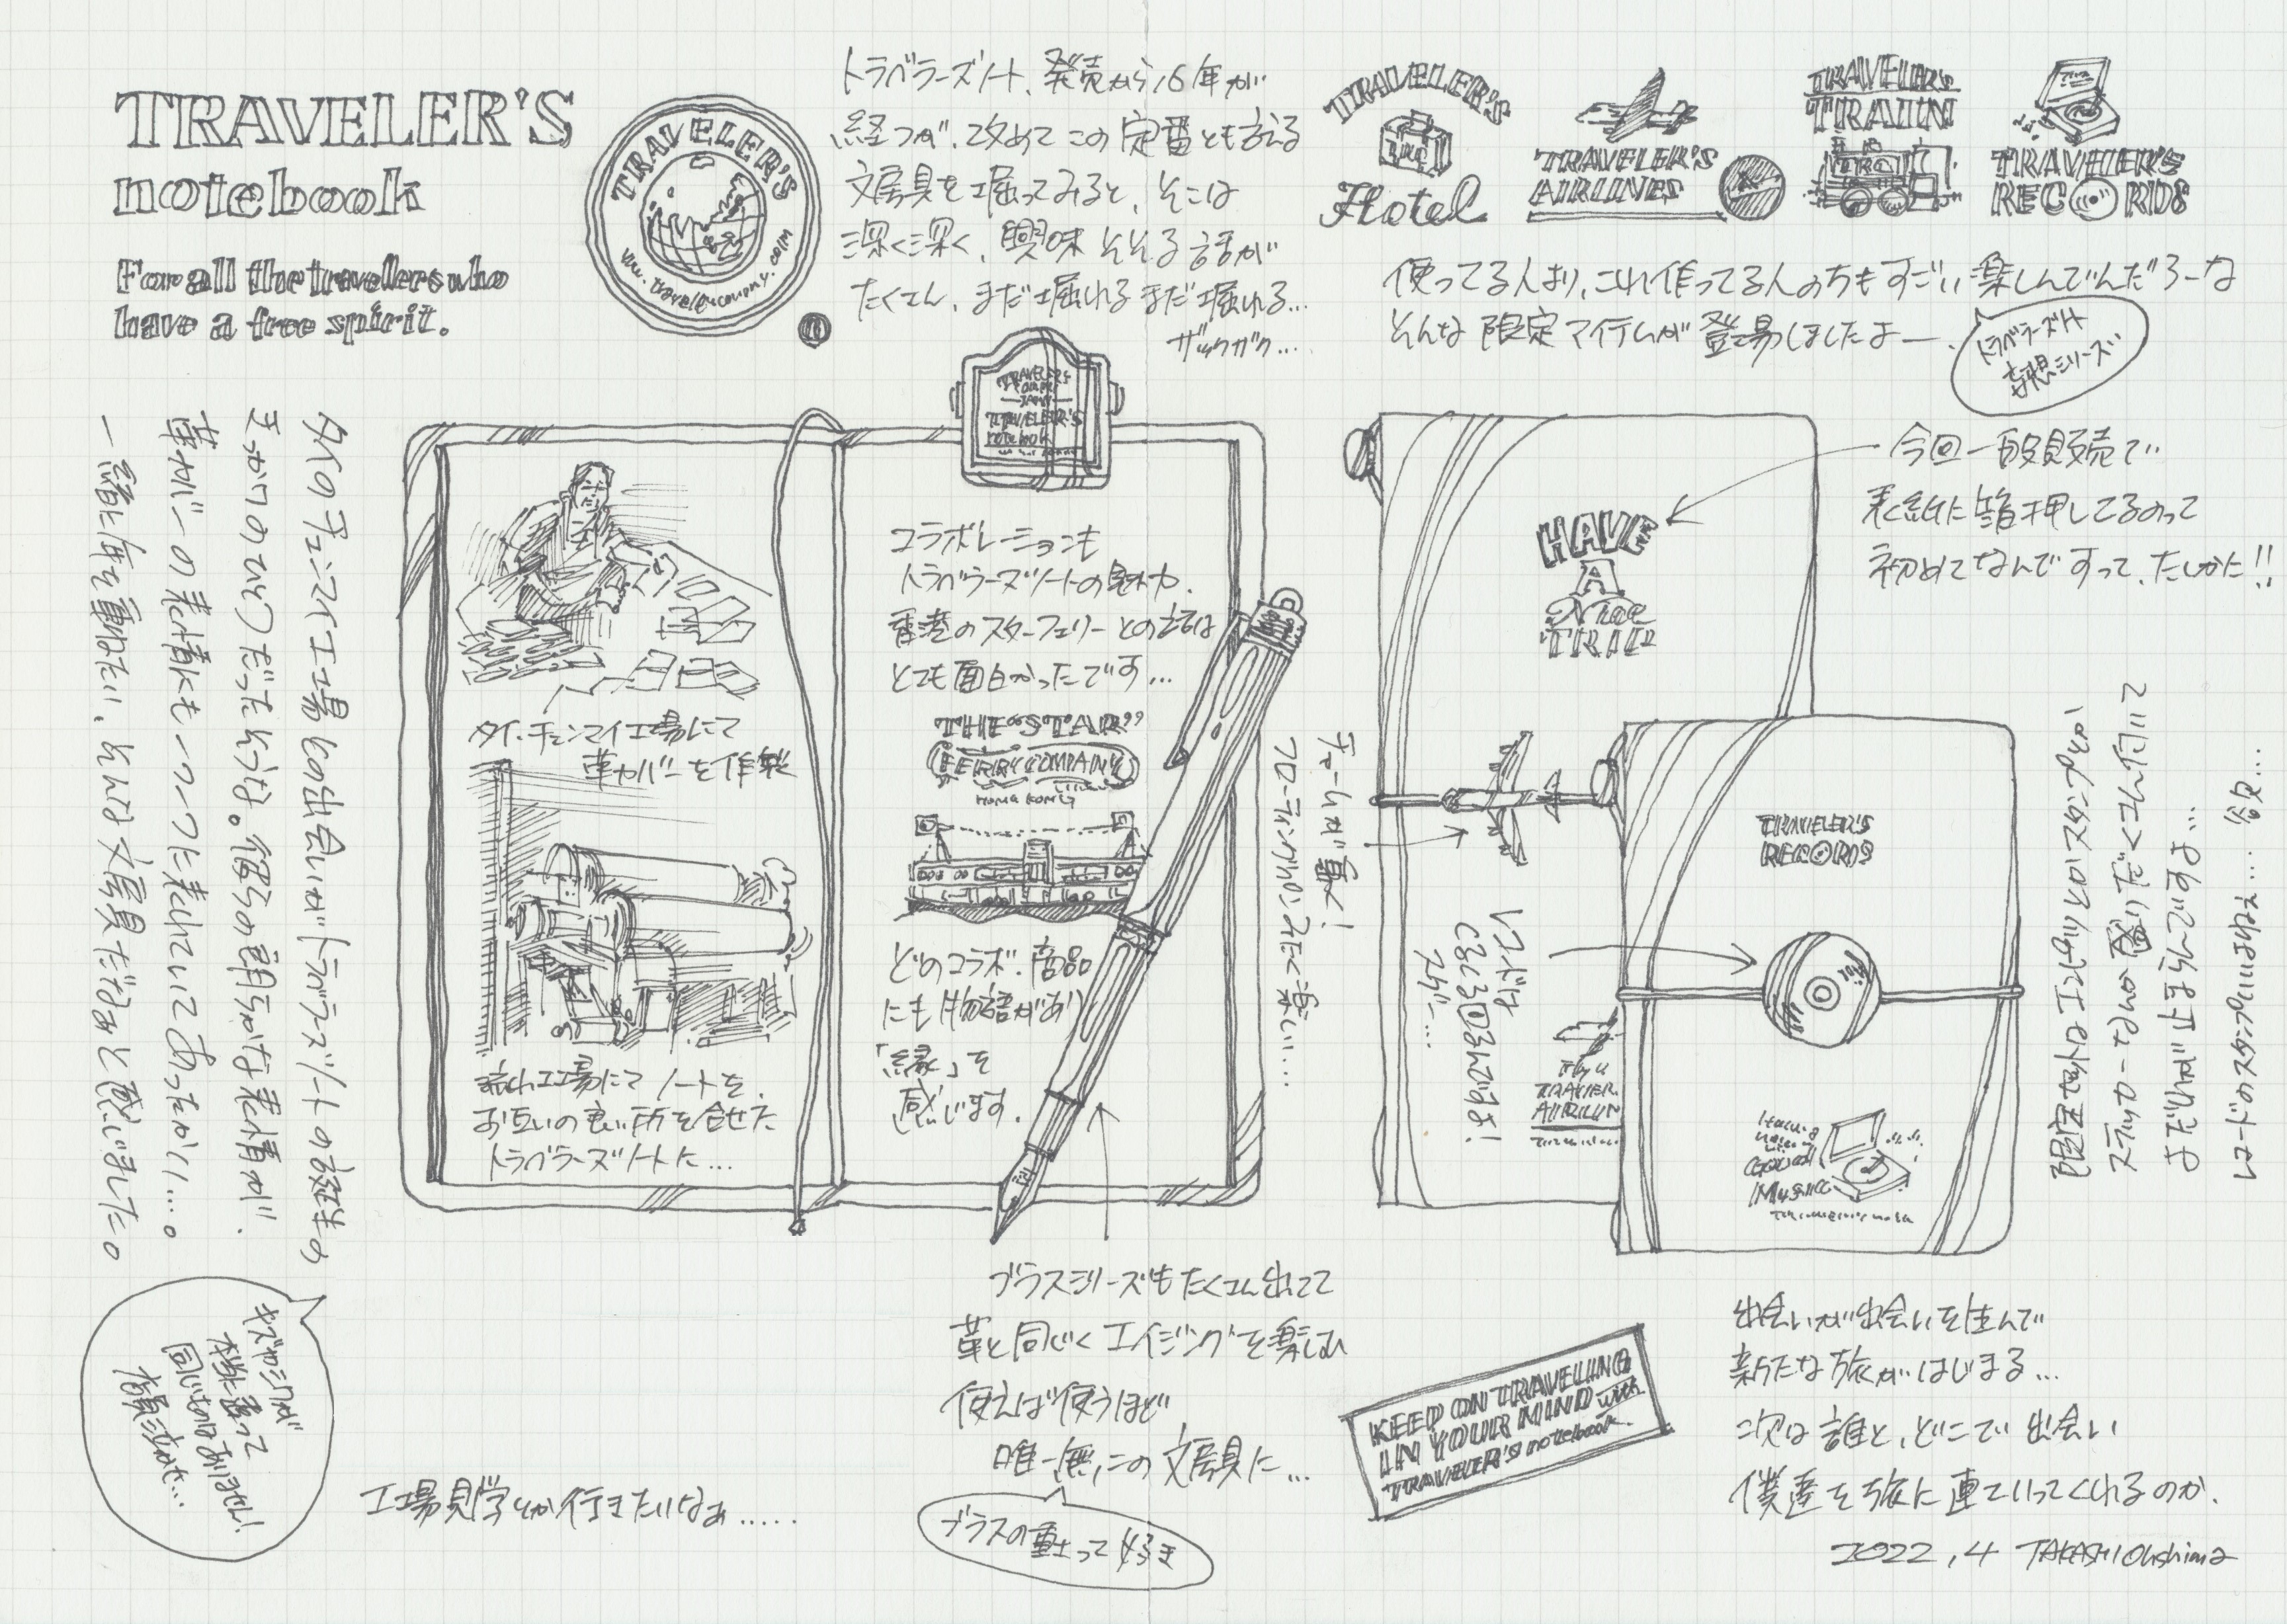 TRAVELER'S
notebook
For all the travelers who
have a free spirit.
TRAVELER'S
www.travelerscompany.com
トラベラーズノート、発売から16年が
経つが、改めてこの定番とも言える
文房具を掘ってみると、そこは
深く深く、興味そそる話が
たくさん、まだ掘れるまだ掘れる…
ザックザク…
TRAVELER'S
Hotel
TRAVELER'S
AIRLINES
TRAVELER'S
TRAIN
TRAVELER'S
RECORDS
使ってる人より、これ作ってる人の方もすごい楽しんでんだろーな
そんな限定アイテムが登場しましたよー、
トラベラーズノート
妄想シリーズ
タイのチェンマイ工場との出会いがトラベラーズノートの誕生の
きっかけのひとつだったそうな。彼らの朗らかな表情が、
革カバーの表情にも一つ一つに表れていてあったかい…。
一緒に年を重ねたい、そんな文房具だなぁと感じました。
キズやシワが
本当に違って
同じものはありません!
TRAVELER'S
notebook
タイ・チェンマイ工場にて
革カバーを作製
流山工場にてノートを、
お互いの良い所を合せた
トラベラーズノートに…
コラボレーションも
トラベラーズノートの魅力、
香港のスターフェリーとの話は
とても面白かったです…
THE "STAR"
FERRY COMPANY
HONG KONG
どのコラボ、商品
にも物語があり
「縁」を
感じます。
HAVE
A
Nice
TRIP
今回一般販売で
表紙に箔押ししてるのって
初めてなんですって、たしかに!!
チャームが動く!
フローティングペンみたく楽しい…
レコードは
くるくる回るんですよ!
スゲー…
Fly
TRAVELER
AIRLIN
TRAVELER'S
RECORDS
Good
Music
限定でエイジングリフィルやスタンプとか
ステッカーなんか盛りだくさん付いて
よだれが出ますですよ…
レコードのスタンプいいよねぇ…
ブラスシリーズもたくさん出てて
革と同じくエイジングを楽しみ
使えば使うほど
唯一無二の文房具に…
ブラスの重さって好き
工場見学とか行きたいなぁ…..
KEEP ON TRAVELING
IN YOUR MIND with
TRAVELER'S notebook
出会いが出会いを生んで
新たな旅がはじまる…
次は誰と、どこで出会い
僕達を旅に連ていってくれるのか、
2022,4 TAKASHI Ohshima